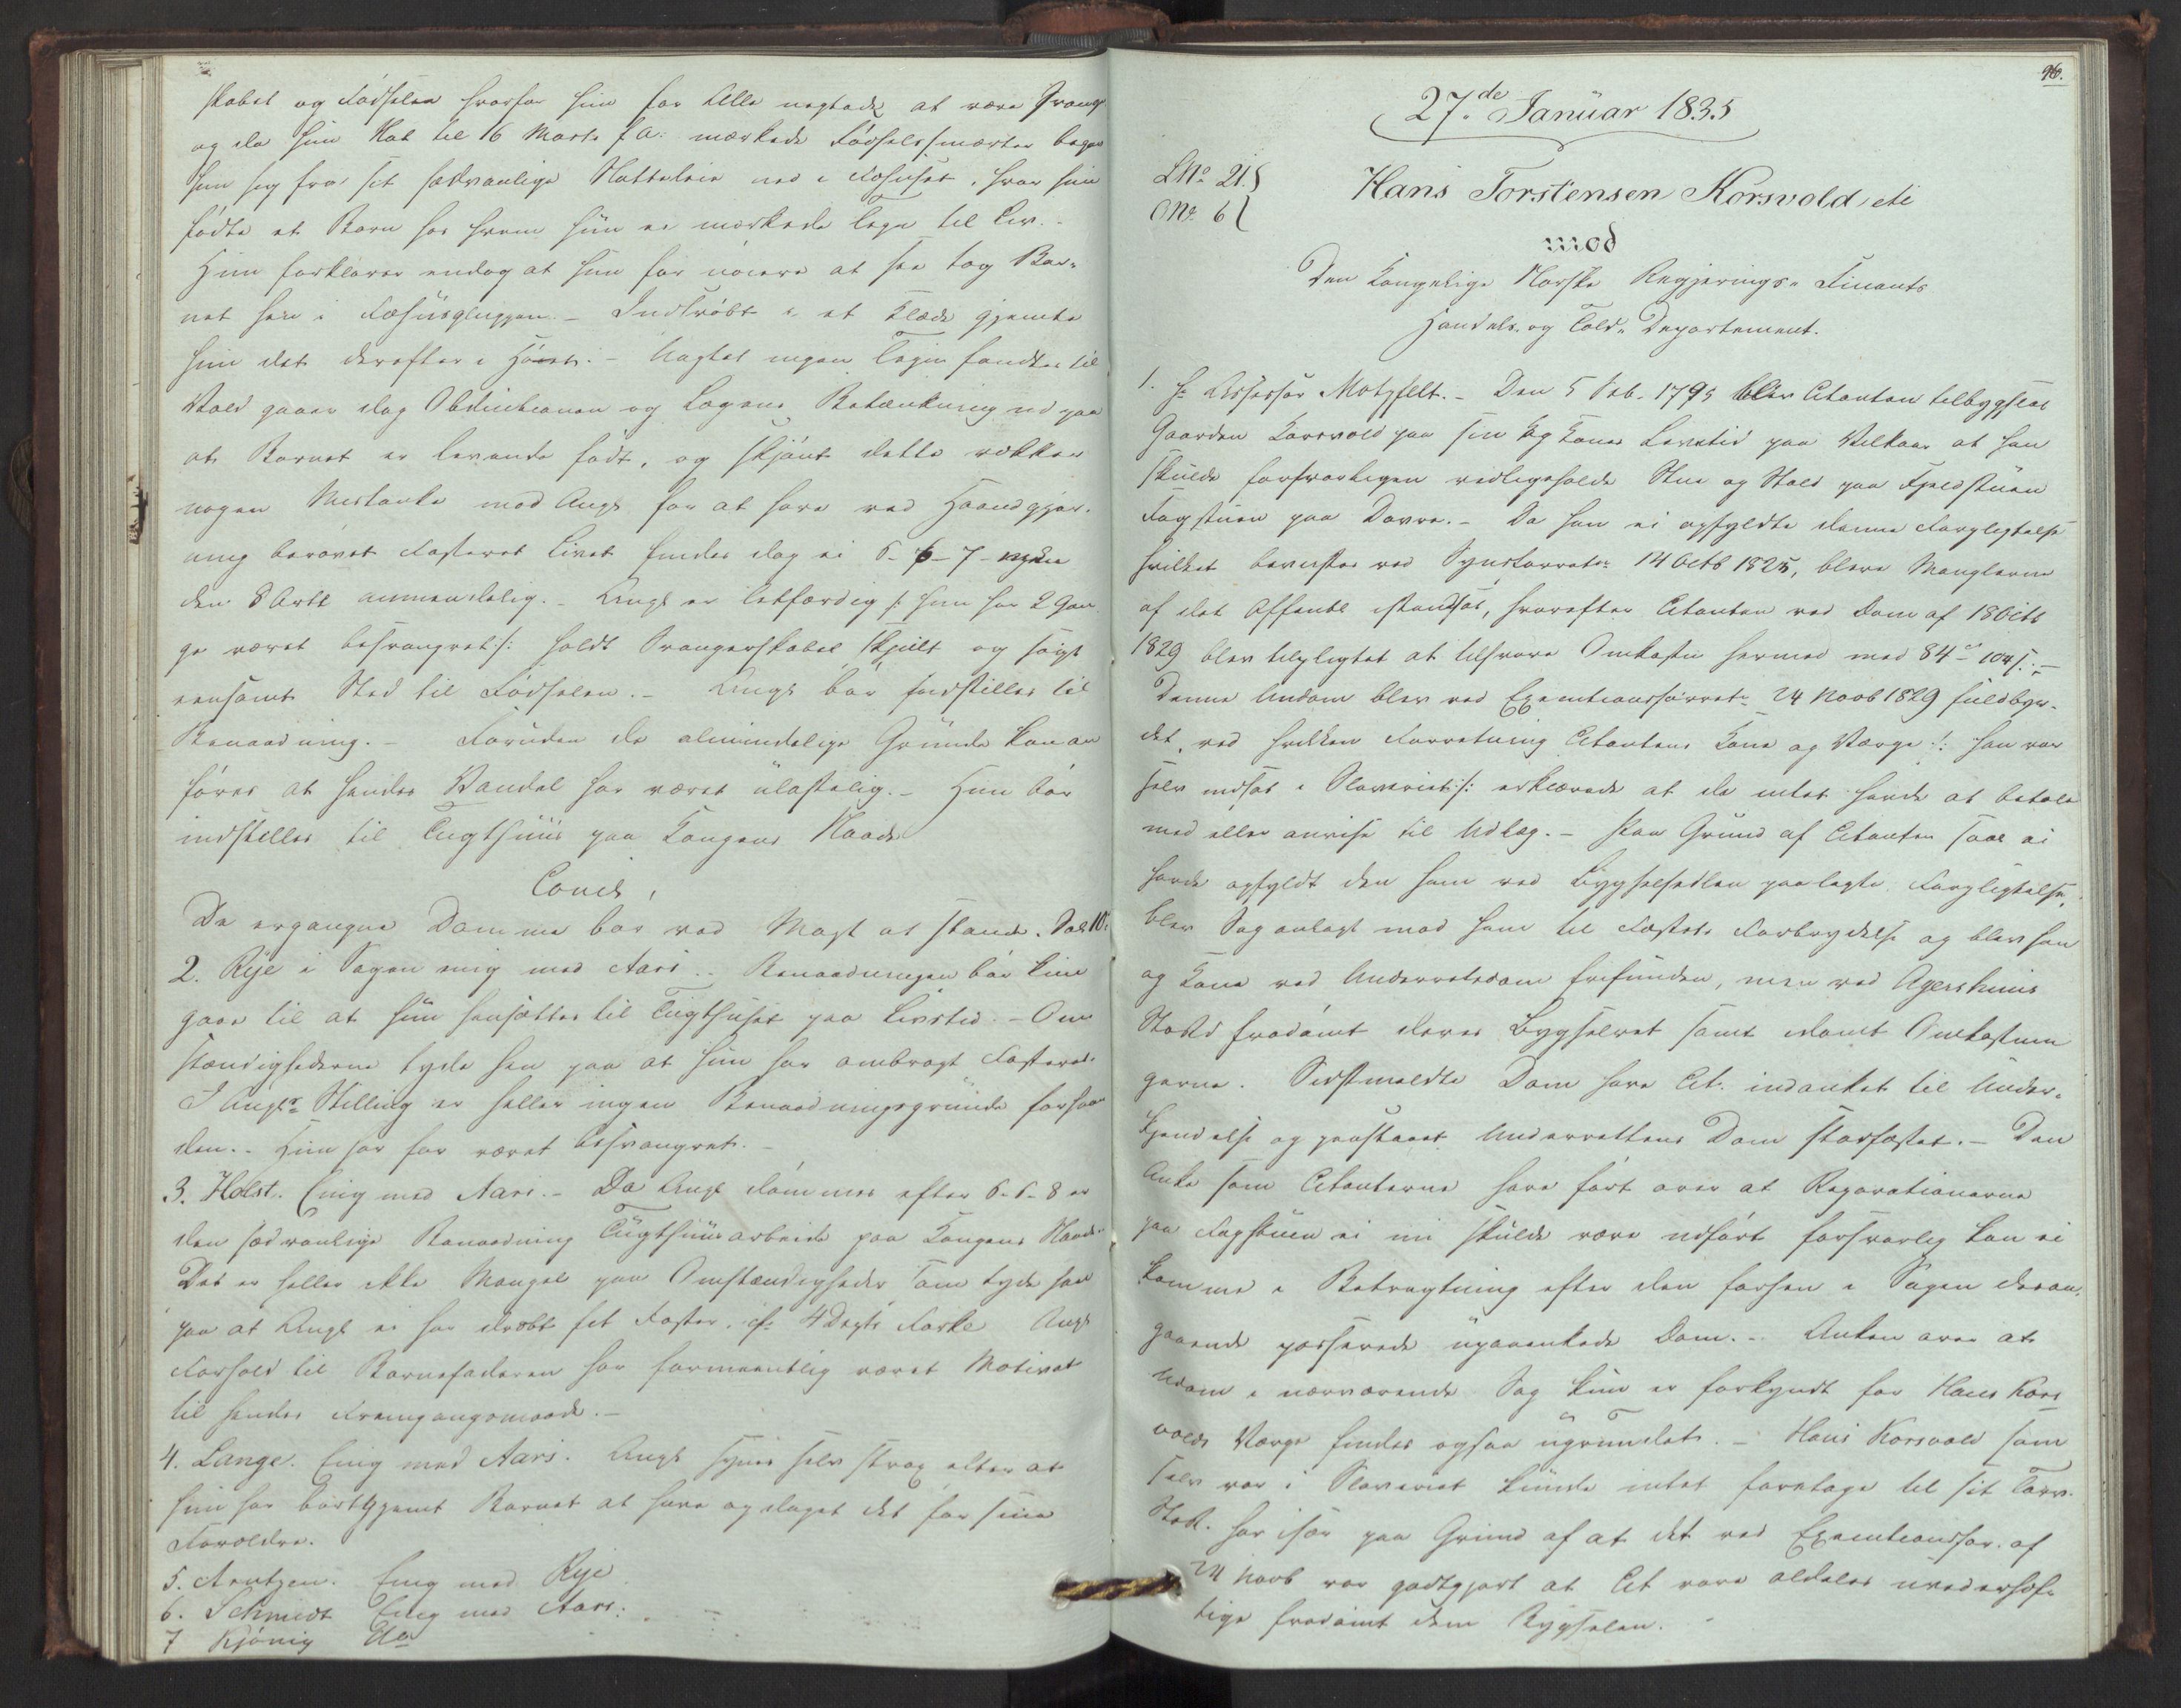 skabet og Fødselen hvorfor hun for Alle negtede at være Svang
og da hun Nat til 16 Marts f. A. mærkede Fødselssmerter begav
hun sig fra sit sædvanlige Natteleie ned i Fæhuset, hvor hun
fødte et Barn hos hvem hun ei mærkede Tegn til Liv. -
Hun forklarer endog at hun før nøiere at see tog Bar-
net hen i Fæhuusgluggen. - Indsvøbt i et Klæde gjemte
hun det derefter i Høet. - Uagtet ingen Tegn fandtes til
Vold gaaer dog Obductionen og Lægens Betænkning ud paa
at Barnet er levende født, og skjønt dette vækker
nogen Mistanke mod Angl for at have ved Haandgjer-
ning berøvet Fosteret Livet findes dog ei 6-6-7 men
den 8 Artl anvendelig. - Angl er letfærdig /: hun har 2 Gan
ge været besvangret :/ holdt Svangerskabet skjult og søgt
eensomt Sted til Fødselen. - Angl bør indstilles til
Benaadning. - Foruden de almindelige Grunde kan an
føres at hendes Vandel har været ulastelig. - Hun bør
indstilles til Tugthuus paa Kongens Naade
Concl,
De ergangne Domme bør ved Magt at stande. Sal 10.
2. Rye i Sagen enig med Aars. - Benaadningen bør kun
gaae til at hun hensættes til Tugthuset paa Livstid. - Om
stændighederne tyde hen paa at hun har ombragt Fosteret.
I Angls Stilling er heller ingen Benaadningsgrunde forhaan
den. - Hun har før været besvangret. -
3. Holst. Enig med Aars. - Da Angl dømmes efter 6-6-8 er
den sædvanlige Benaadning Tugthuusarbeide paa Kongens Naade
Det er heller ikke Mangel paa Omstændigheder som tyde hen
paa at Angl ei har dræbt sit Foster. cfr 4 Angl
Forhold til Barnefaderen har formeentlig været Motivet
til hendes Fremgangsmaade. -
4. Lange. Enig med Aars. Angl synes selv strax efter at
hun har bortgjemt Barnet at have opdaget det for sine
Forældre.
5. Arntzen. Enig med Rye
6. Schmidt Enig med Aars.
7 Kjønig do
96.
27de Januar 1835
LNo 21.
ONo 6
Hans Torstensen Korsvold, etc
mod
Den Kongelige Norske Regjerings- Finants
Handels- og Told- Departement.
1. Hr Assessor Motzfelt. - Den 5 Feb. 1795 blev Citanten tilbygslet
Gaarden Korsvold paa sin og Kones Levetid paa Vilkaar at han
skulde forsvarligen vedligeholde Stue og Stald paa Fjeldstuen
Fogstuen paa Dovre. - Da han ei opfyldte denne Forpligtelse
hvilket bevistes ved Synsforretn 14 Octb 1825, bleve Manglerne
af det Offentl istandsat, hvorefter Citanten ved Dom af 18 Octb
1829 blev tilpligtet at tilsvare Omkostn hermed med 84 - 104 s. -
Denne Undom blev ved Executionsforretn 24 Novb 1829 fuldbyr-
det, ved hvilken Forretning Citantens Kone og Værge /: han var
selv indsat i Slaveriet :/ erklærede at de intet havde at betale
med eller anvise til Udlæg. - Paa Grund af Citanten saal. ei
havde opfyldt den ham ved Bygselsedlen paalagte Forpligtelse,
blev Sag anlagt mod ham til Fæstets Forbrydelse og blev han
og Kone ved Underretsdom frifunden, men ved Agershuus
Stiftd fradømt deres Bygselret samt dømt Omkostnin
gerne. Sidstmeldte Dom have Cit. indanket til Under-
kjendelse og paastaaet Underrettens Dom stadfæstet. - Den
Anke som Citanterne have ført over at Reparationerne
paa Fogstuen ei nu skulde være udført forsvarlig kan ei
komme i Betragtning efter den forhen i Sagen desan-
gaaende passerede upaaankede Dom. - Anken over at
Udom i nærværende Sag kun er forkyndt for Hans Kors
volds Værge findes ogsaa ugrundet. - Hans Korsvold som
selv var i Slaveriet kunde intet foretage til sit Tarv.
Stiftd. har især paa Grund af at det ved Executionsfor. af
24 Novb var godtgjort at Cit vare aldeles uvederhæf-
tige fradømt dem Bygselen.